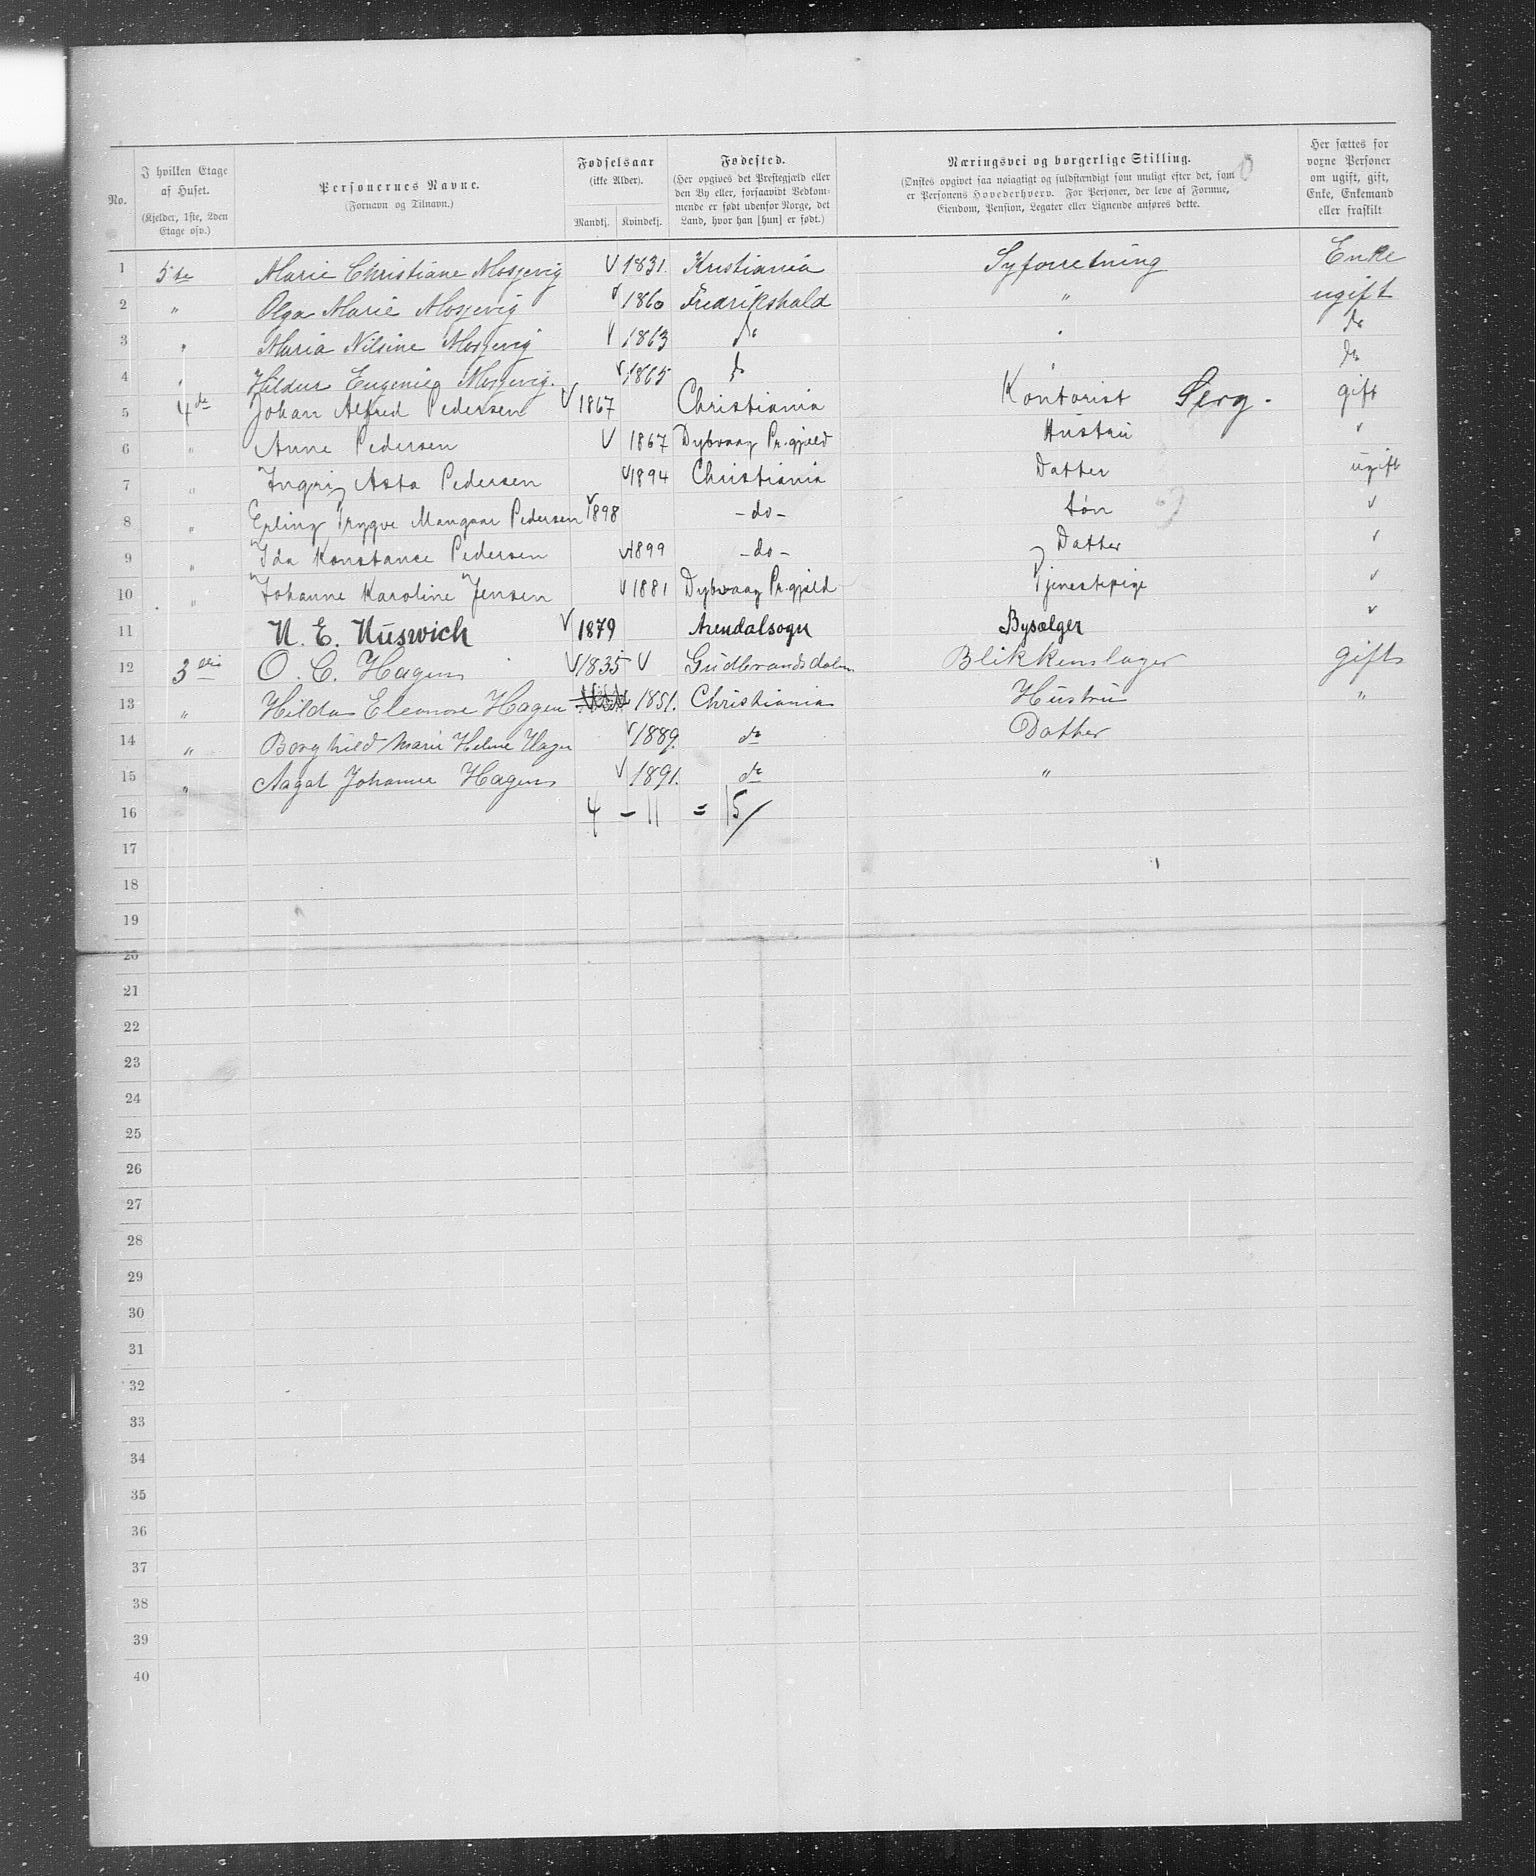 No. I hvilken Etage af Huset. (Kjelder, 1ste, 2den Etage osv.) Personernes Navne. (Fornavn og Tilnavn.) Fødselsaar (ikke Alder). Mandkj. Kvindekj. Fødested. (Her opgives det Prestegjæld eller den By eller, forsaavidt Vedkommende er født udenfor Norge, det Land, hvor han [hun] er født.) Næringsvei og borgerlige Stilling. (Ønskes opgivet saa nøiagtigt og fuldstændigt som muligt efter det, som er Personens Hovederhverv. For Personer, der leve af Formue, Eiendom, Pension, Legater eller Lignende anføres dette. Her sættes for voxne Personer om ugift, gift, Enke, Enkemand eller fraskilt
1 5te Marie Christiane Mosjevig V 1831. Kristiania Syforretning Enke
2 " Olga Marie Mosjevig V 1860 Fredrikshald " ugift
3 " Maria Nilsine Mosjevig V 1863 do " do
4 " Hildur Eugenie Mosjevig. V 1865 do " do
5 4de Johan Alfred Pedersen V 1867 Christiania Kontorist Serg. gift
6 " Anne Pedersen V 1867 Dybvaag Pr.gjæld Hustru "
7 " Ingrid Asta Pedersen V 1894 Christiania Datter ugift
8 " Erling Trygve Pedersen V 1898 - do - Søn "
9 " Ida Konstance Pedersen V 1899 - do - Datter "
10 " Johanne Karoline Jensen V 1881 Dybvaag Pr.gjæld Tjenestepige "
11 N. E. Nuswich V 1879 Arendalsogn Bysælger "
12 3die O. C. Hagen V 1835 V Gudbrandsdalen Blikkenslager gift
13 " Hilda Eleonore Hagen 1851. Christiania Hustru "
14 " Borghild Marie Helene Hagen V 1889. do Datter
15 " Aagot Johanne Hagen V 1891. do "
16 4 - 11 = 15/
17
18
19
20
21
22
23
24
25
26
27
28
29
30
31
32
33
34
35
36
37
38
39
40